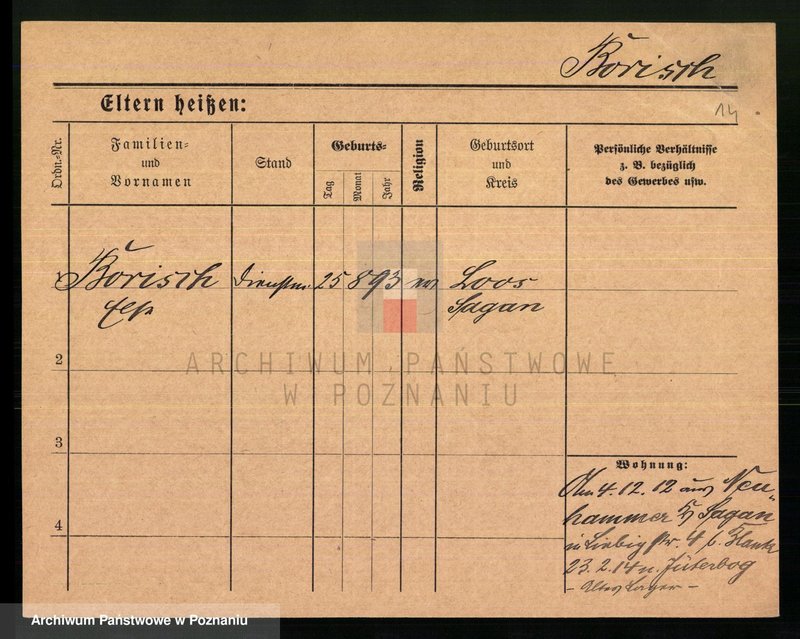 Borisch
14
Eltern heißen:
Ordn.=Nr.
Familien=
und
Vornamen
Stand
Geburts=
Tag
Monat
Jahr
Religion
Geburtsort
und
Kreis
Persönliche Verhältnisse
z. B. bezüglich
des Gewerbes usw.
Borisch Dienstm. 25 8 93 ev Loos
Else Sagan
2
ARCHIWUM PAŃSTWOWE
W POZNANIU
3
4
Wohnung:
Am 4.12.12 aus Neu=
hammer Sagan
in Liebigstr. 4 b.
23.2.14 n. Jüterbog
- Altes Lager -
Archiwum Państwowe w Poznaniu